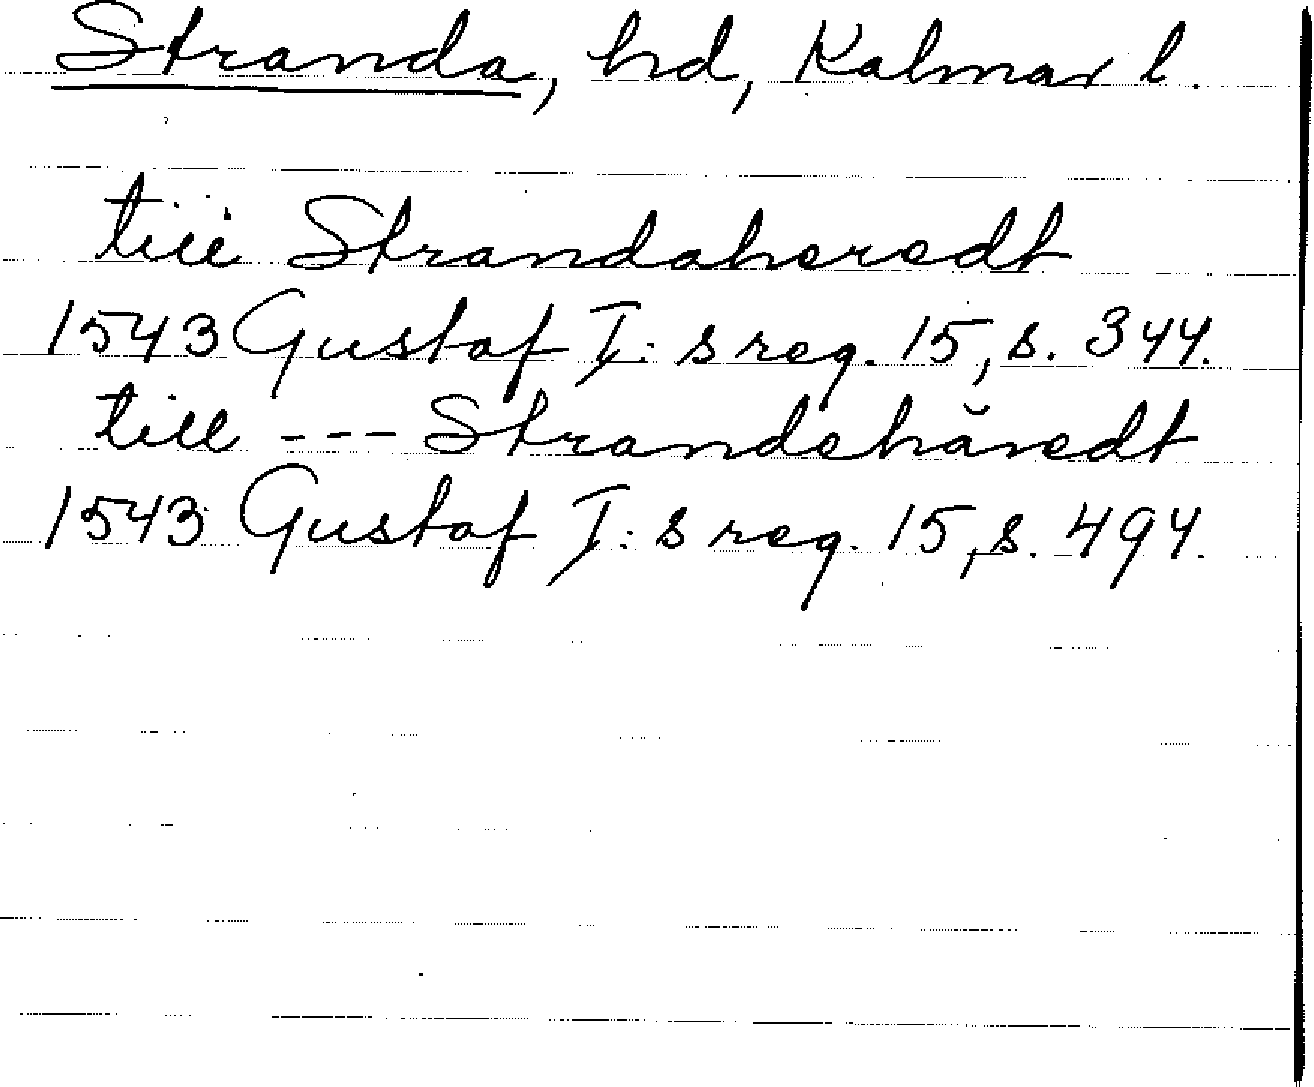 Stranda, hd, Kalmar l.
till Strandaheredt
1543 Gustaf I:s reg. 15, s. 344.
till --- Strandehäredt
1543 Gustaf I:s reg. 15, s. 494.